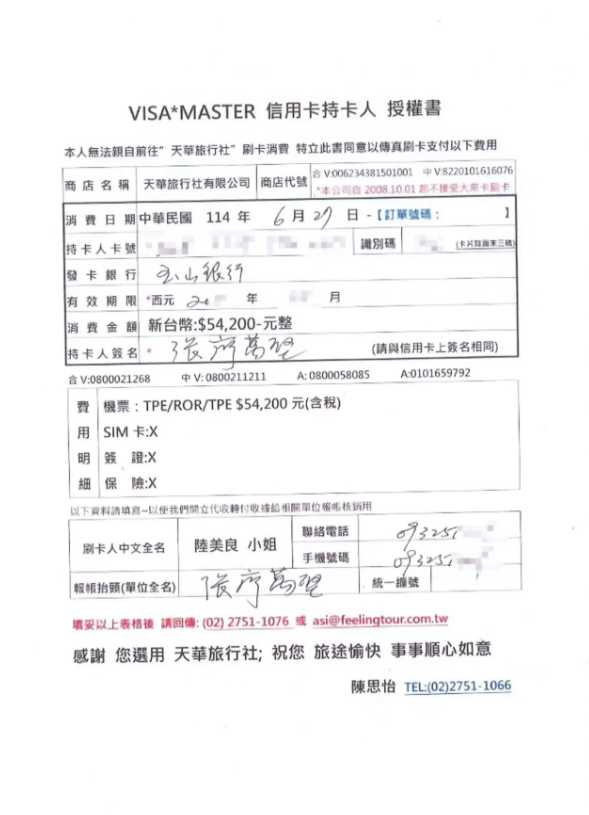 VISA*MASTER 信用卡持卡人 授權書
本人無法親自前往" 天華旅行社" 刷卡消費 特立此書同意以傳真刷卡支付以下費用
商店名稱 天華旅行社有限公司 商店代號 合 V:006234381501001 中 V:8220101616076
*本公司自 2008.10.01 起不接受大來卡刷卡
消費日期 中華民國 114 年 6 月 27 日 -【訂單號碼: 】
持卡人卡號 識別碼 (卡片背面末三碼)
發卡銀行 玉山銀行
有效期限 *西元 20 年 月
消費金額 新台幣:$54,200-元整
持卡人簽名 * 張 (請與信用卡上簽名相同)
合 V:0800021268 中 V: 0800211211 A: 0800058085 A:0101659792
費用明細
機票：TPE/ROR/TPE $54,200 元(含稅)
SIM 卡:X
簽 證:X
保 險:X
以下資料請填寫~以便我們開立代收轉付收據給相關單位報帳核銷用
刷卡人中文全名 陸美良 小姐 聯絡電話 093251
手機號碼 093251
報帳抬頭(單位全名) 張 統一編號
填妥以上表格後 請回傳: (02) 2751-1076 或 asi@feelingtour.com.tw
感謝 您選用 天華旅行社; 祝您 旅途愉快 事事順心如意
陳思怡 TEL:(02)2751-1066